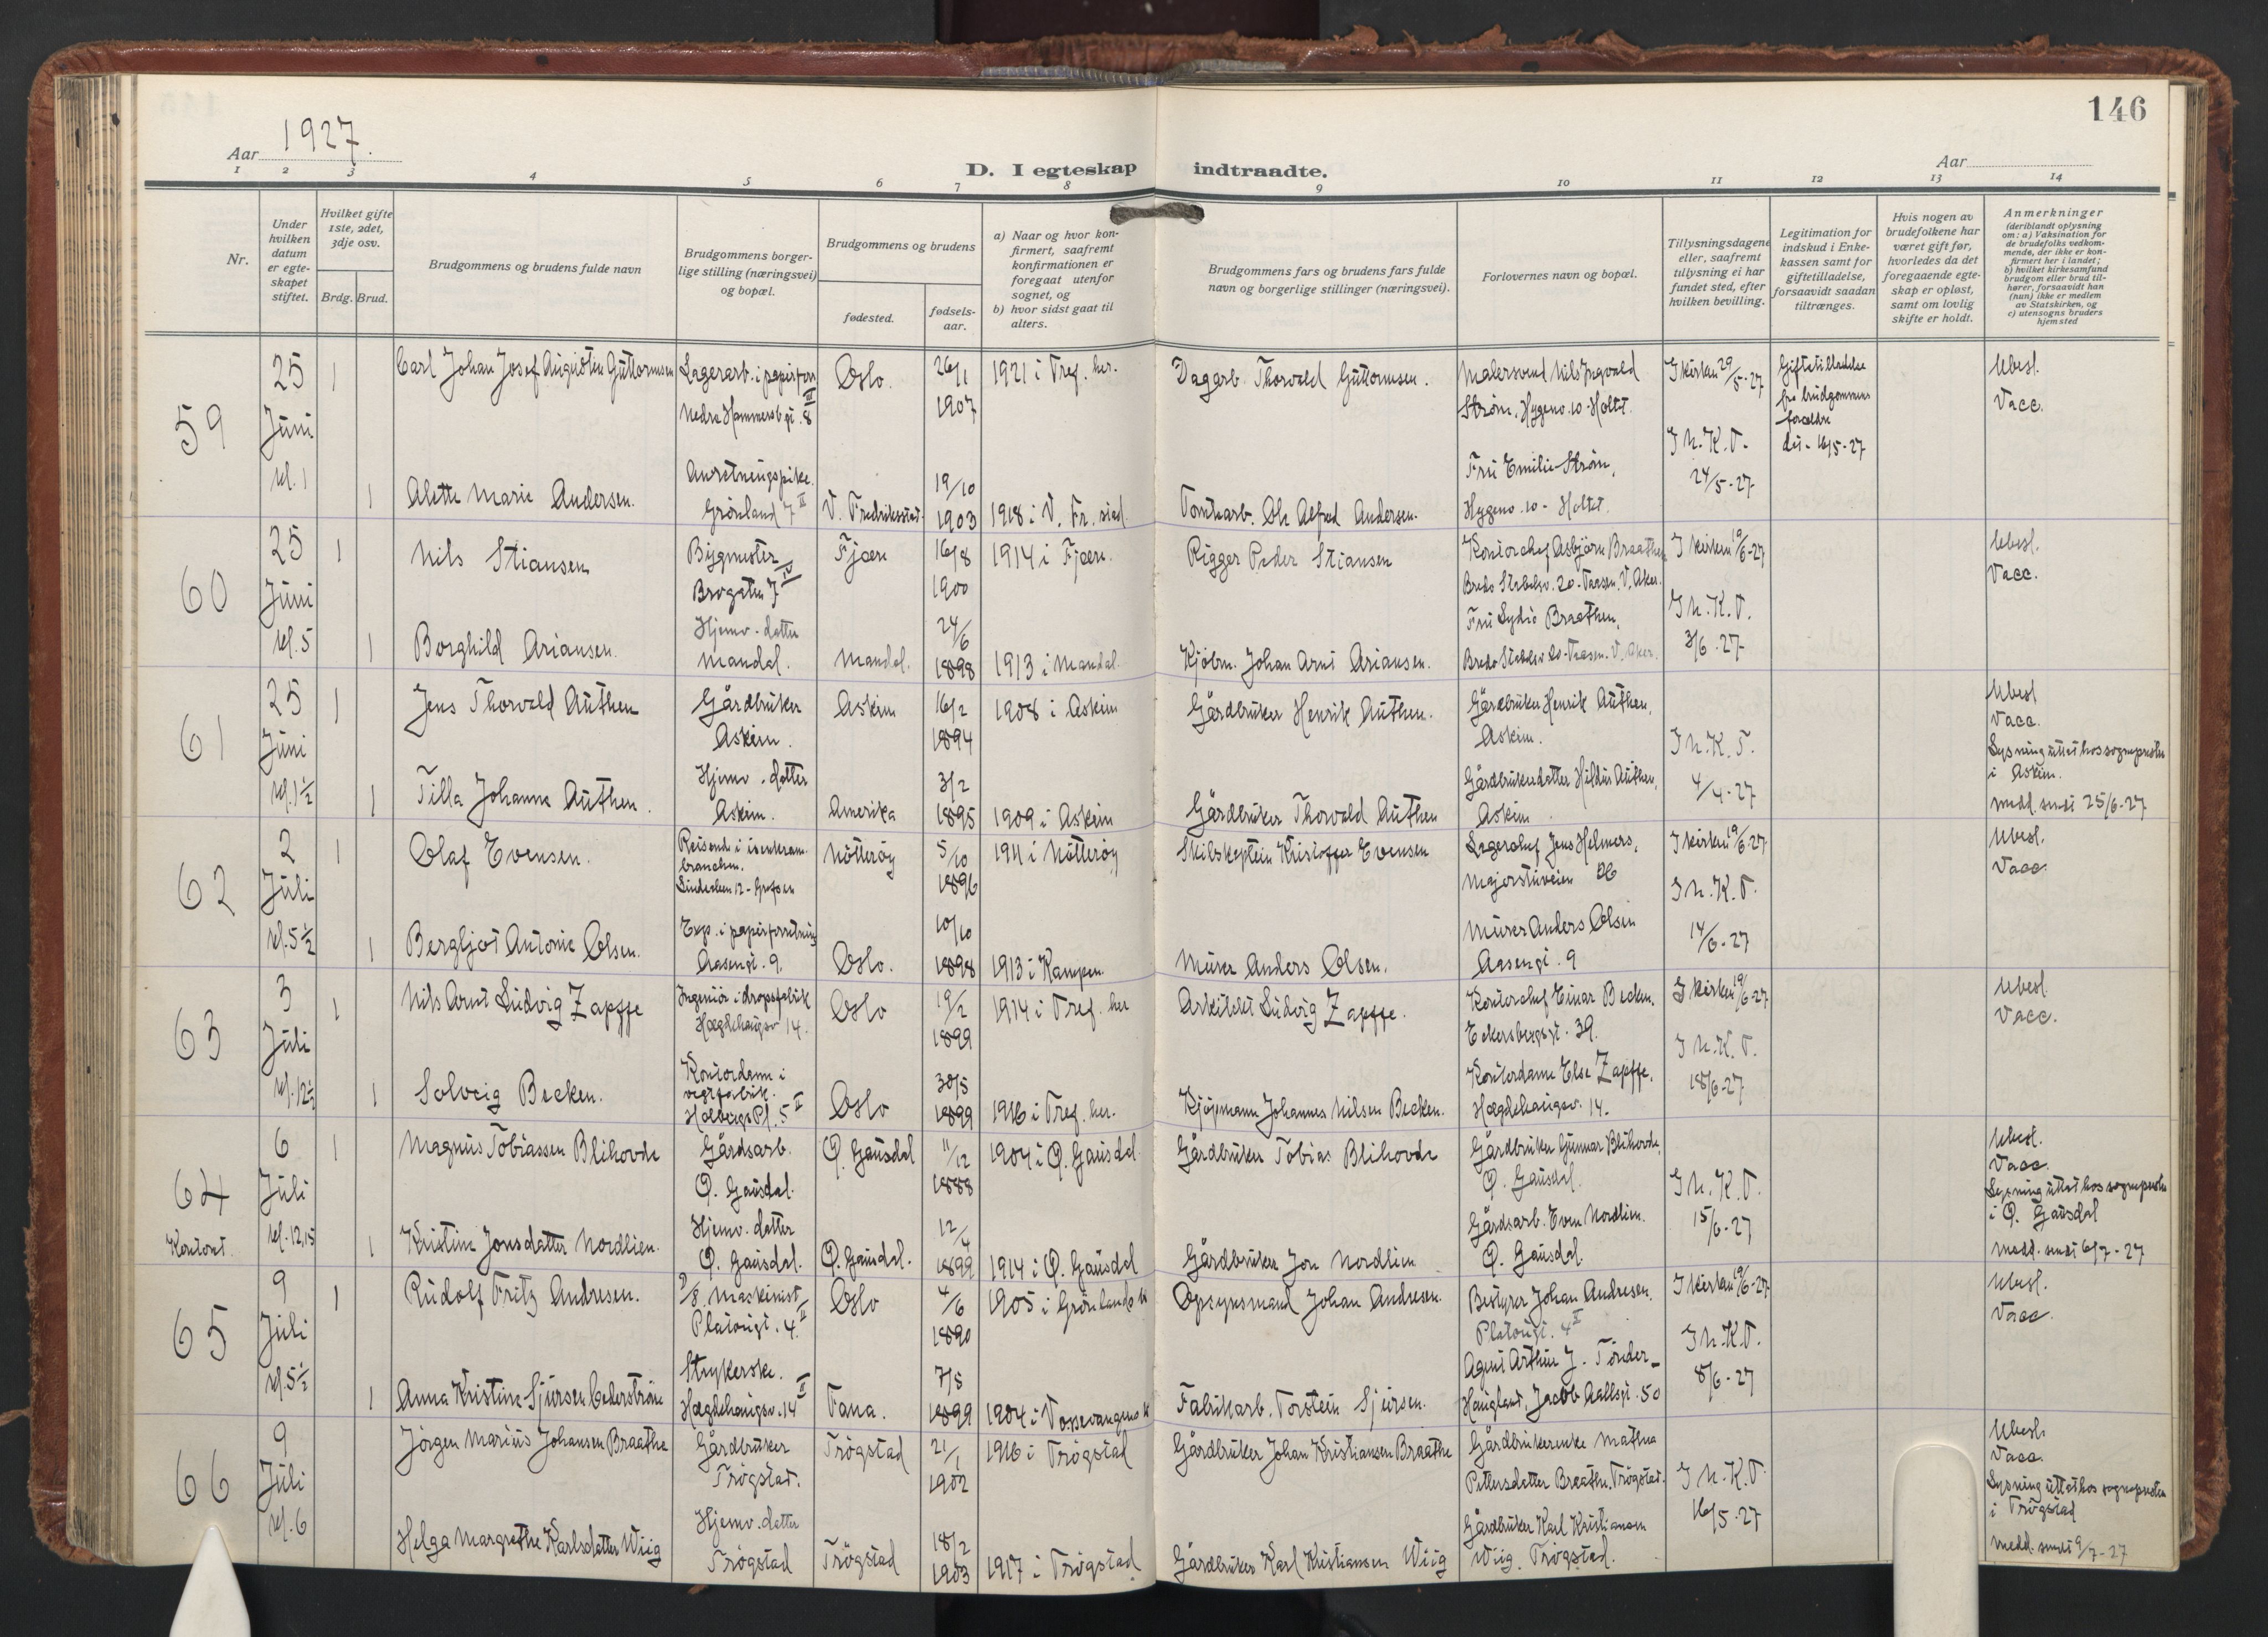 146
Aar 1927.
D. I egteskap indtraadte.
Aar
1 2 3 4 5 6 7 8 9 10 11 12 13 14
Nr.
Under hvilken datum er egte-skapet stiftet.
Hvilket gifte 1ste, 2det, 3dje osv.
Brdg. Brud.
Brudgommens og brudens fulde navn
Brudgommens borger-lige stilling (næringsvei) og bopæl.
Brudgommens og brudens
fødested.
fødsels-aar.
a) Naar og hvor kon-firmert, saafremt konfirmationen er foregaat utenfor sognet, og
b) hvor sidst gaat til alters.
Brudgommens fars og brudens fars fulde navn og borgerlige stillinger (næringsvei).
Forlovernes navn og bopæl.
Tillysningsdagene eller, saafremt tillysning ei har fundet sted, efter hvilken bevilling.
Legitimation for indskud i Enke-kassen samt for giftetilladelse, forsaavidt saadan tiltrænges.
Hvis nogen av brudefolkene har været gift før, hvorledes da det foregaaende egte-skap er opløst, samt om lovlig skifte er holdt.
Anmerkninger (deriblandt oplysning om: a) Vaksination for de brudefolks vedkom-mende, der ikke er kon-firmert her i landet; b) hvilket kirkesamfund brudgom eller brud til-hører, forsaavidt han (hun) ikke er medlem av Statskirken, og c) utensogns bruders hjemsted
59
25 Juni kl. 1
1 Carl Johan Josef Augustin Guttormsen
Lagerarb. i papirforr. Nedre Hammersb. gt. 8 III
Oslo. 26/11 1907
1921 i Tref. her.
Dagarb. Thorvald Guttormsen.
Malersvend Nils Ingvald Strøm, Hygeav. 10 - Holtet.
I kirken 29/5-27
Giftetilladelse fra brudgommens forældre dat. 16/5-27
Ubesl. Vacc.
1 Alette Marie Andersen.
Anretningspike. Grønland 7 II
V. Fredrikstad. 19/10 1903
1918 i V. Fr. stad.
Tomtearb. Ole Alfred Andersen.
Fru Emilie Strøm, Hygeav. 10 - Holtet.
I h. K. T. 24/5-27
60
25 Juni kl. 5
1 Nils Stiansen
Bygmester Brogaten 7 IV
Fjære 16/8 1900
1914 i Fjære.
Rigger Peder Stiansen
Kontorchef Asbjørn Braathen Bredo Stabelsv. 20 - Taasen. V. Aker.
I kirken 19/6-27
Ubesl. Vacc.
1 Borghild Ariansen.
Hjemv. datter Mandal.
Mandal. 24/6 1898
1913 i Mandal.
Kjøbm. Johan Arnt Ariansen.
Fru Lydia Braathen, Bredo Stabelsv 20 - Taasen. V. Aker.
I h. K. T. 3/6-27
61
25 Juni kl. 1 1/2
1 Jens Thorvald Authen
Gårdbruker Askim.
Askim 16/2 1894
1908 i Askim
Gårdbruker Henrik Authen.
Gårdbruker Henrik Authen, Askim.
I h. K. T. 4/4-27
Ubesl Vacc. Lysning uttat hos sognepresten i Askim. medd. sendt 25/6-27
1 Tilla Johanne Authen.
Hjemv. datter Askim.
Amerika 3/2 1895
1909 i Askim
Gårdbruker Thorvald Authen
Gårdbrukerdatter Hildur Authen, Askim
62
2 Juli kl. 5 1/2
1 Olaf Evensen.
Reisende i isenkram-branchen. Lindealleen 12 - Grefsen
Nøtterøy 5/10 1896
1911 i Nøtterøy
Skibskaptein Kristoffer Evensen
Lagerchef Jens Helmers, Majorstuveien
I kirken 19/6-27
Ubesl. Vacc.
1 Bergljot Antonie Olsen.
Exp. i papirforretning Aasengt. 9.
Oslo. 10/10 1898
1913 i Kampen.
Murer Anders Olsen.
Murer Anders Olsen Aasengt. 9
I h. K. T. 14/6-27
63
3 Juli kl. 12 1/2
1 Nils Arnt Ludvig Zapffe
Ingeniør i dropsfabrik Hægdehaugsv 14.
Oslo 19/2 1899
1914 i Tref. her
Arkitekt Ludvig Zapffe.
Kontorchef Einar Becken. Eckersbergsgt. 39.
I kirken 19/6-27
Ubesl. Vacc.
1 Solveig Becken.
Kontordame i vegtfabrik. Holbergs Pl. 5 II
Oslo 30/5 1899
1916 i Tref. her.
Kjøpmann Johannes Nilsen Becken.
Kontordame Else Zapffe, Hægdehaugsv. 14.
I h. K. T. 18/6-27
64 Kontoret.
6 Juli kl. 12,15
1 Magnus Tobiassen Blihovde
Gårdsarb. Ø. Gausdal.
Ø. Gausdal 11/12 1888
1904 i Ø. Gausdal.
Gårdbruker Tobias Blihovde
Gårdbruker Gunnar Blihovde, Ø. Gausdal.
I h. K. T. 15/6-27
Ubesl. Vacc. Lysning uttat hos sognepresten i Ø. Gausdal medd. sendt 6/7-27
1 Kristine Jonsdatter Nordlien.
Hjemv. datter Ø. Gausdal.
Ø. Gausdal. 12/4 1899
1914 i Ø. Gausdal
Gårdbruker Jon Nordlien
Gårdsarb. Even Nordlien. Ø. Gausdal.
65
9 Juli kl. 5 1/2
1 Rudolf Fritz Andresen.
D/S. Maskinist Platousgt. 4. II
Oslo 4/6 1890
1905 i Grønlands k
Opsynsmand Johan Andresen.
Bestyrer Johan Andresen. Platousgt. 4 II
I kirken 19/6-27
Ubesl. Vacc.
1 Anna Kristine Sjursen Cederstrøm
Strykerske. Hægdehaugsv. 14 II
Fana. 7/8 1899
1904 i Vossevangens k
Fabrikarb. Torstein Sjursen.
Agent Arthur J. Tønder-Haugland, Jacob Aallsgt. 50
I h. K. T. 8/6-27
66
9 Juli kl. 6
Jørgen Marius Johansen Braathe
Gårdbruker Trøgstad.
Trøgstad 21/1 1902
1916 i Trøgstad
Gårdbruker Johan Kristiansen Braathe
Gårdbrukerenke Mathea Pettersdatter Braathe. Trøgstad.
I h. K. T. 16/5-27
Ubesl. Vacc. Lysning uttat hos sognepresten i Trøgstad medd. sendt 9/7-27
Helga Margrethe Karlsdatter Wiig
Hjemv. datter Trøgstad
Trøgstad 18/2 1903
1917 i Trøgstad
Gårdbruker Karl Kristiansen Wiig
Gårdbruker Karl Kristiansen Wiig. Trøgstad.